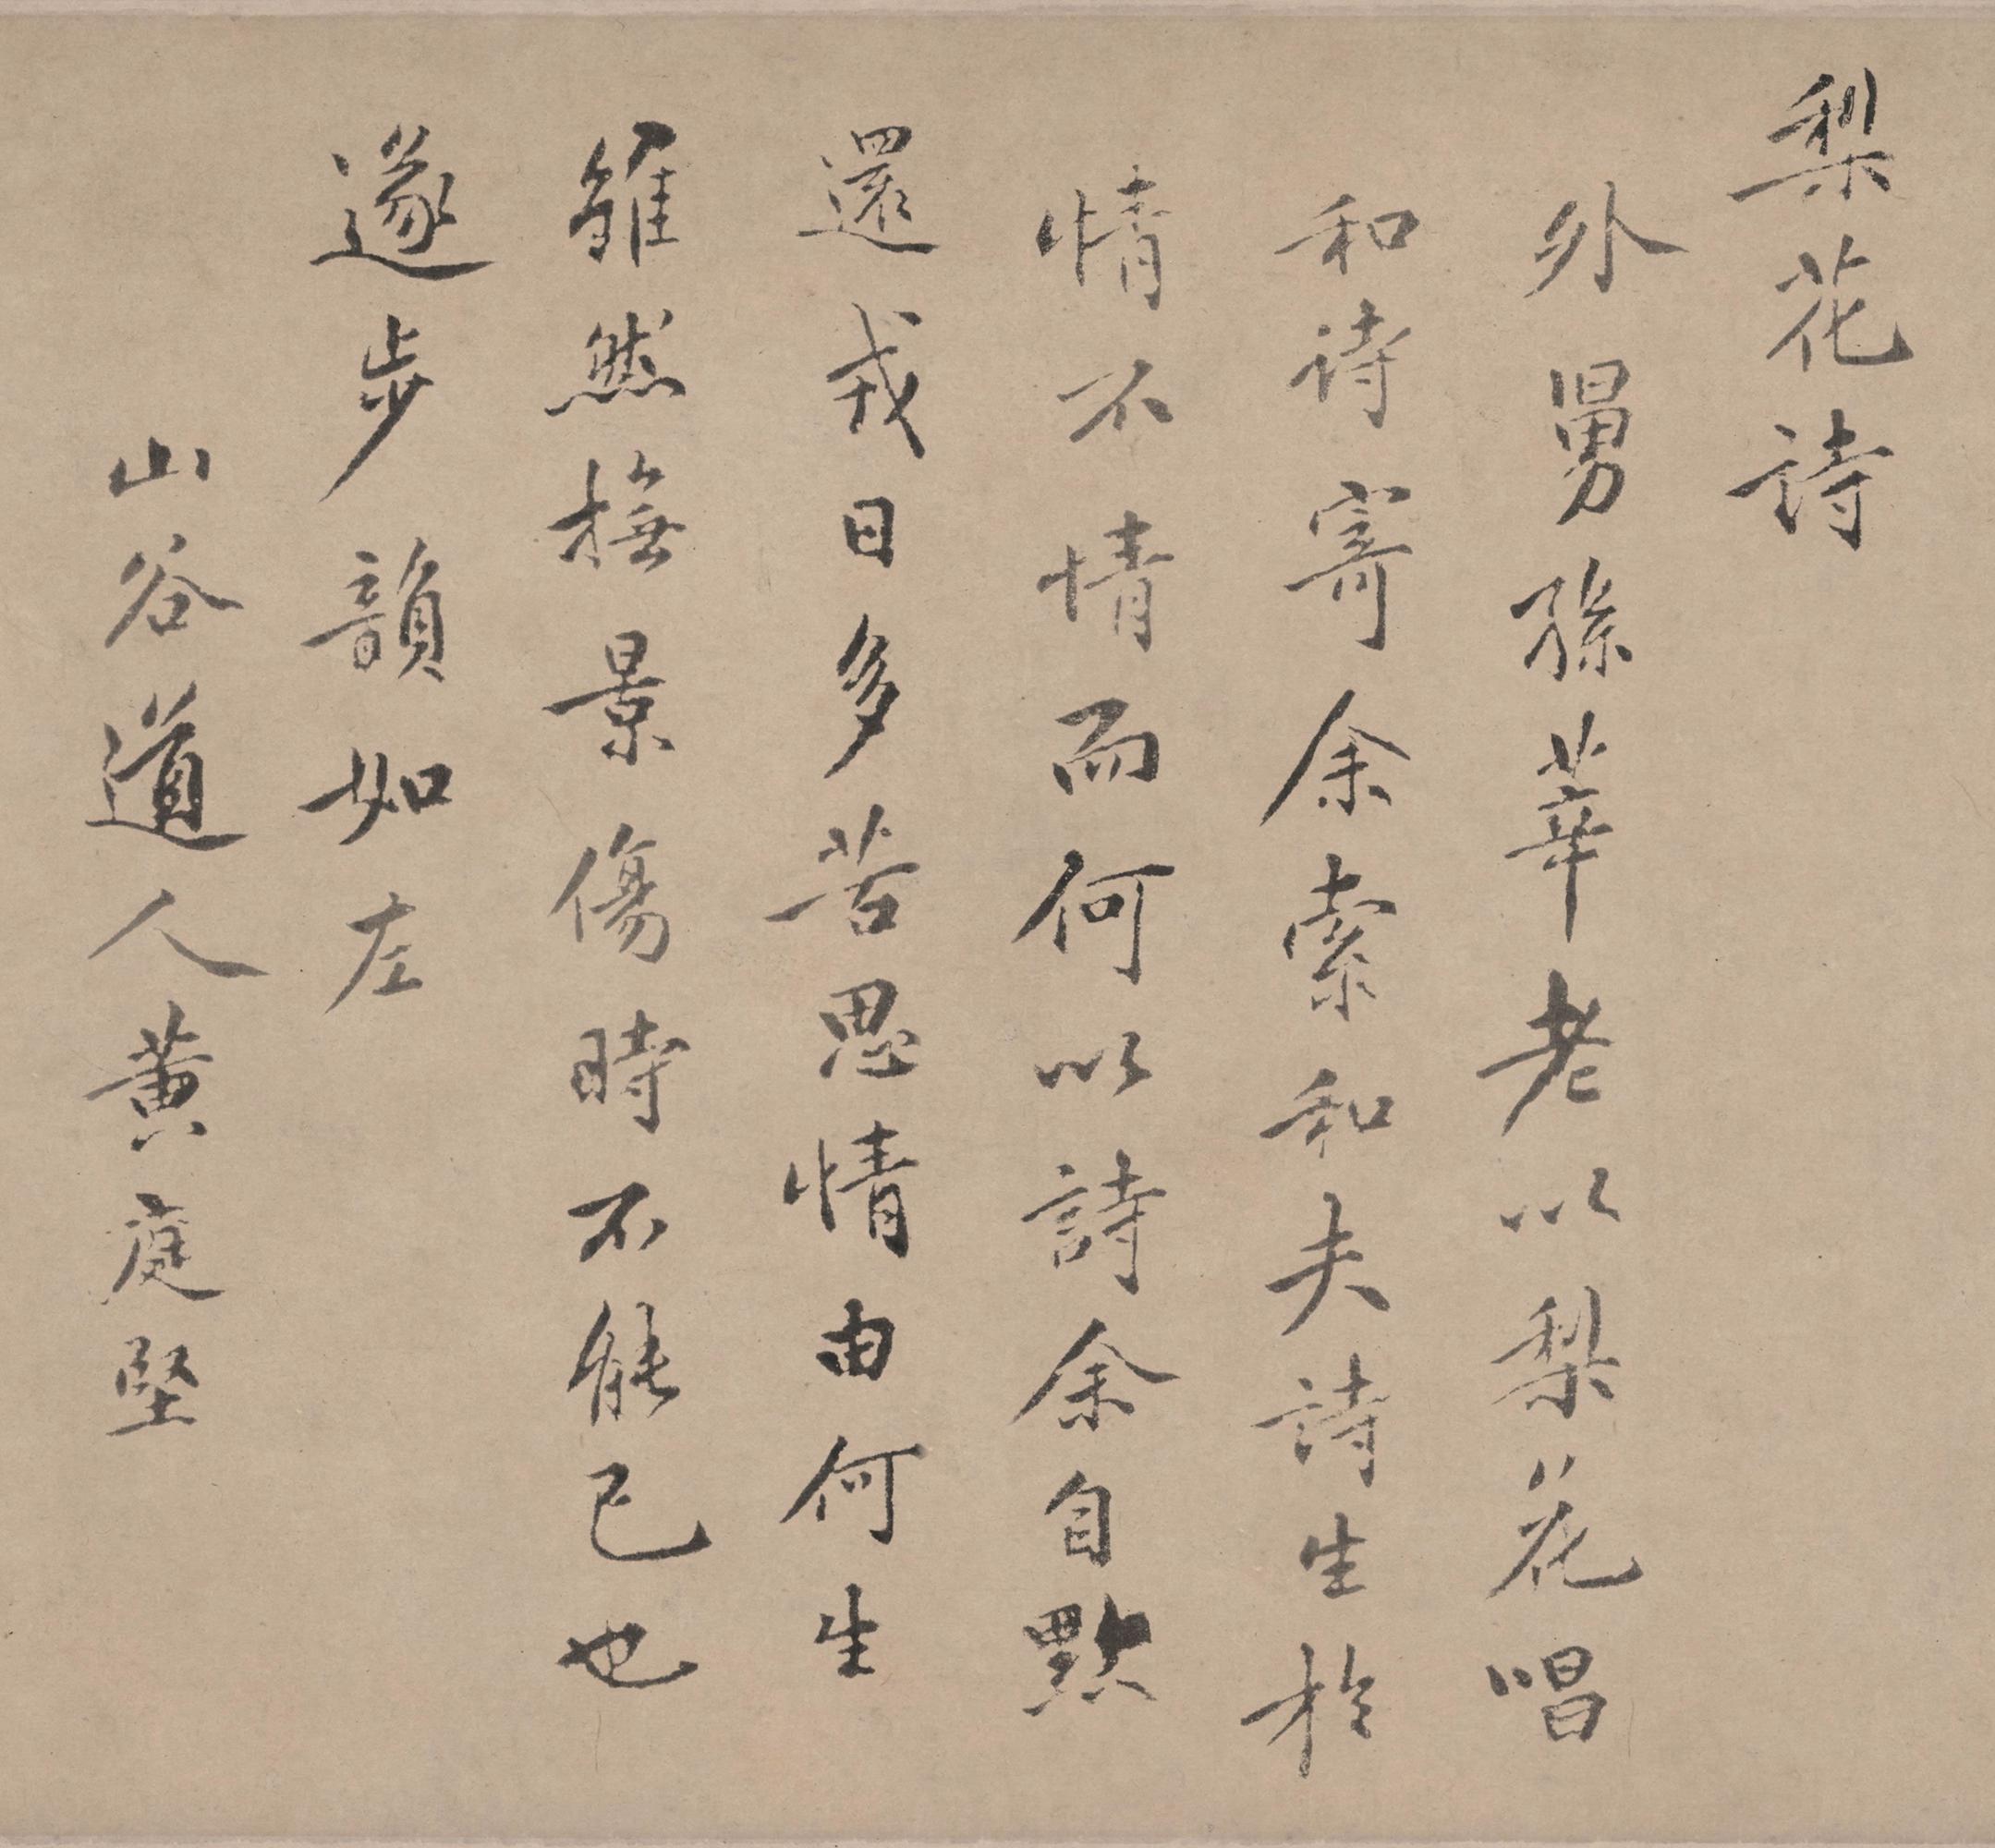 梨花詩
外舅孫莘老以梨花唱
和詩寄余索和夫詩生於
情不情而何以詩余自黜
還戎日多苦思情由何生
雖然撫景傷時不能已也
遂步韻如左
山谷道人黄庭堅